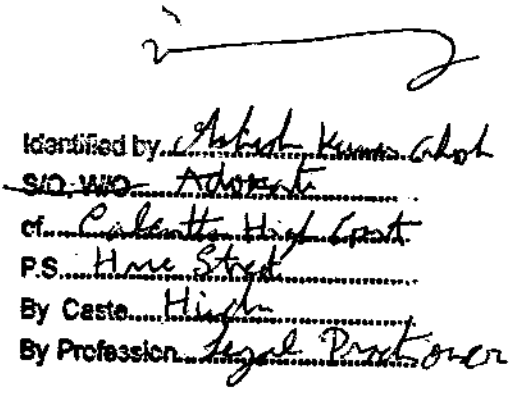 Identified by Ashish Kumar Ghosh
S/O, W/O Advocate
of Calcutta High Court
P.S. Hare Street
By Caste Hindu
By Profession Legal Practioner